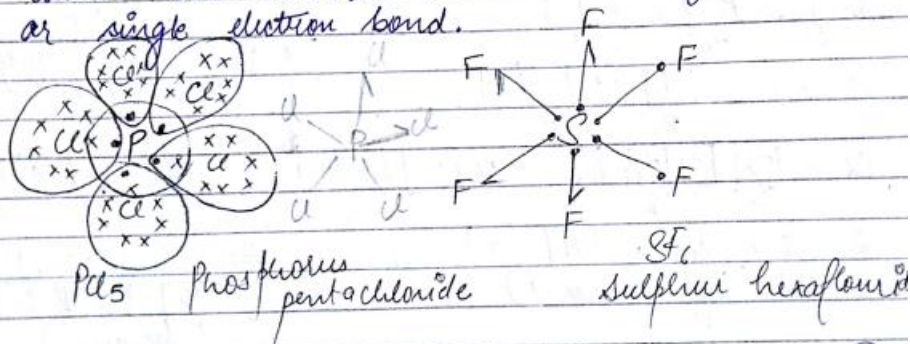 as single electron bond.
Cl Cl Cl P Cl Cl
Cl Cl P Cl Cl Cl
F F F S F F F
PCl5 Phosphorus
pentachloride
SF6
Sulphur hexaflourid